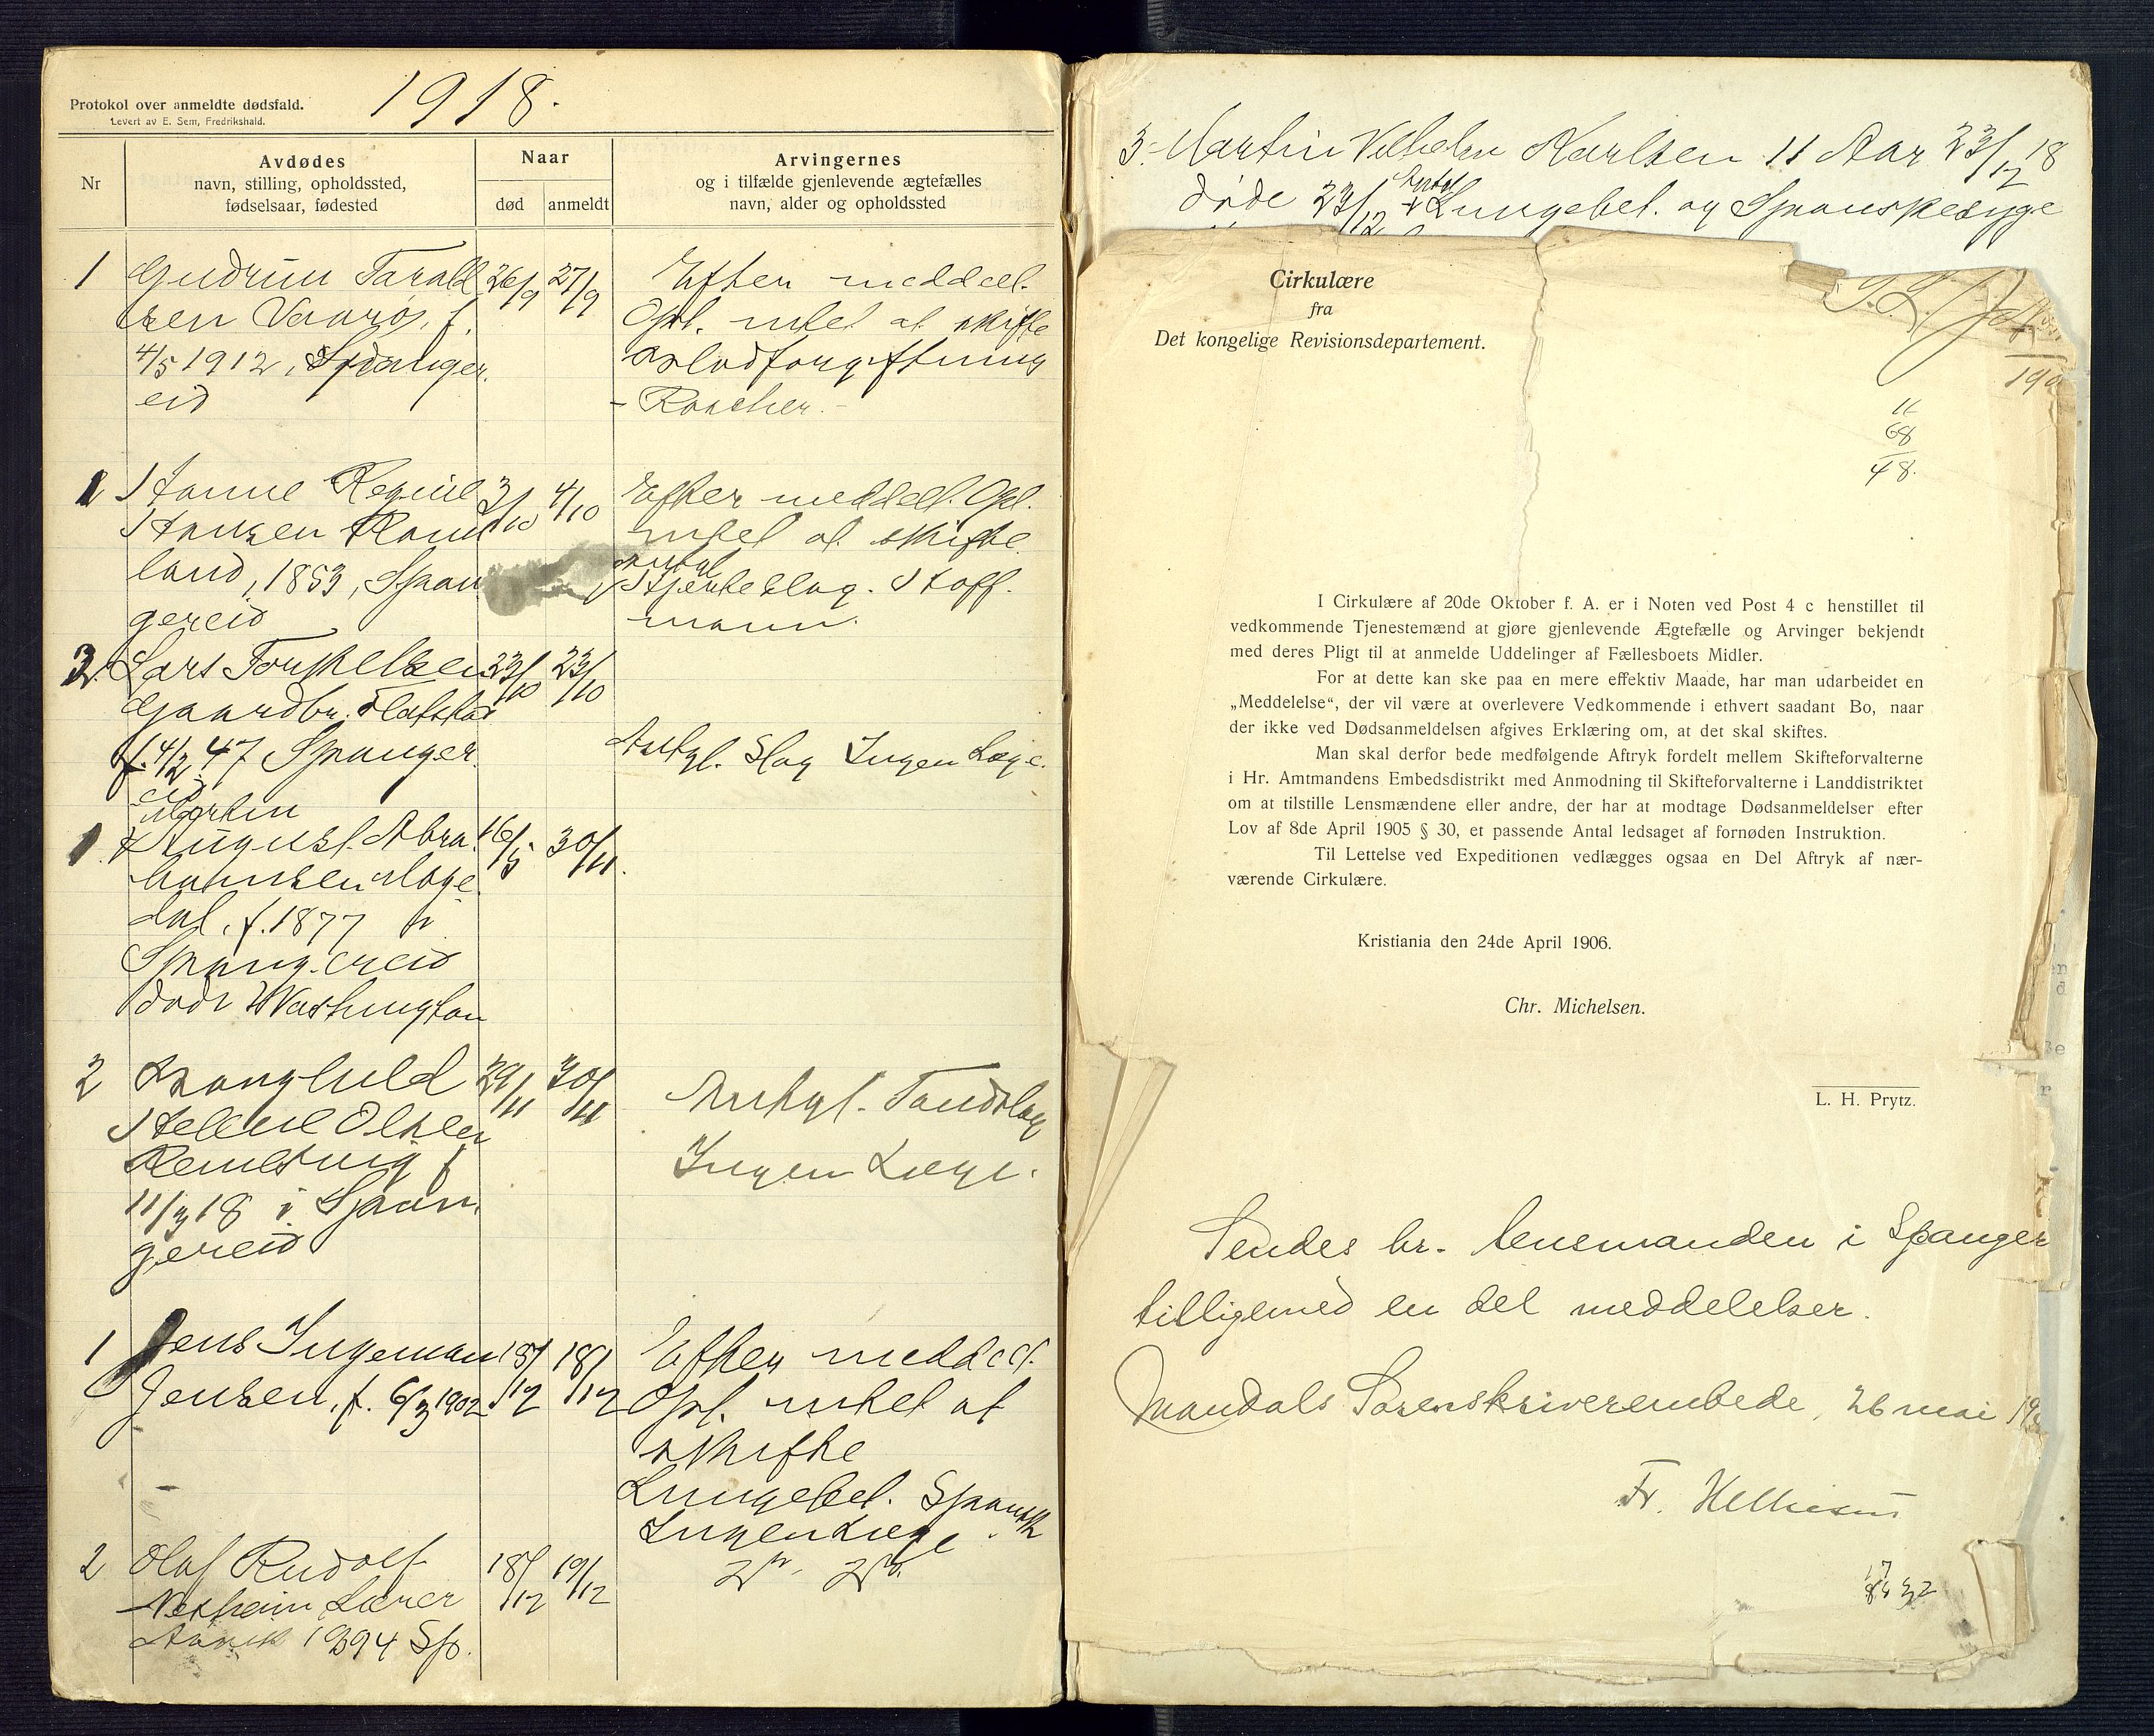 Protokol over anmeldte dødsfald.
Levert av E. Sem, Fredrikshald.
1918.
Nr
Avdødes
navn, stilling, opholdssted,
fødselsaar, fødested
Naar
død
anmeldt
Arvingernes
og i tilfælde gjenlevende ægtefælles
navn, alder og opholdssted
1 Gudrun Tarald 26/9 27/9 Efter meddeel.
sen Vaarø, f. Opl. intet at skifte
4/5 1912, Spanger Blodforgiftning
eid - Roscher. -
2 Hanne Regine 3/10 4/10 Efter meddeel. Opl.
Hansen Ram intet at skifte
land, 1853, Span antgl Hjerteslag. Hoff
gereid mann.
3 Lars Torkelsen 23/10 23/10
Gaardbr.
f. 4/2 47 Spanger Antgl. Slag Ingen Læge.
eid
Martin
1 August Abra 16/5 30/11.
hamsen Hage
dal, f. 1877 i
Spangereid
død i Washington
2 Ragnhild 29/11 30/11 Antgl. Tandslag
Helene Olsen Ingen Læge.
Remesvig f
11/3 18 i Span
gereid
1 Jens Ingeman 18/12 18/12 Efter meddeel.
Jensen, f. 6/3 1902 Opl. intet at
skifte
Lungebet. Spansk
Ingen Læge
2 Olaf Rudolf 18/12 19/12
Lærer
1894 Sp.
3. Martin Vilhelm Karlsen 11 Aar 23/12 18
døde 23/12 antgl Lungebet. og Spanskesyge
Cirkulære
fra
Det kongelige Revisionsdepartement.
11
68
48.
I Cirkulære af 20de Oktober f. A. er i Noten ved Post 4 c henstillet til
vedkommende Tjenestemænd at gjøre gjenlevende Ægtefælle og Arvinger bekjendt
med deres Pligt til at anmelde Uddelinger af Fællesboets Midler.
For at dette kan ske paa en mere effektiv Maade, har man udarbeidet en
„Meddelelse“, der vil være at overlevere Vedkommende i ethvert saadant Bo, naar
der ikke ved Dødsanmeldelsen afgives Erklæring om, at det skal skiftes.
Man skal derfor bede medfølgende Aftryk fordelt mellem Skifteforvalterne
i Hr. Amtmandens Embedsdistrikt med Anmodning til Skifteforvalterne i Landdistriktet
om at tilstille Lensmændene eller andre, der har at modtage Dødsanmeldelser efter
Lov af 8de April 1905 § 30, et passende Antal ledsaget af fornøden Instruktion.
Til Lettelse ved Expeditionen vedlægges ogsaa en Del Aftryk af nær-
værende Cirkulære.
Kristiania den 24de April 1906.
Chr. Michelsen.
L. H. Prytz.
Sendes hr. lensmanden i Spanger
tilligemed en del meddelelser.
Mandals Sorenskriverembede, 26 mai 19